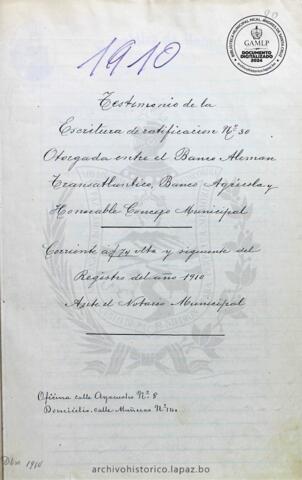 1910
GAMLP
DOCUMENTO
DIGITALIZADO
2024
Testimonio de la
Escritura de ratificacion Nº 30
Otorgada entre el Banco Aleman
Transatlantico, Banco Agrícola y
Honorable Concejo Municipal
Corriente a f 74 vlta y siguiente del
Registro del año 1910
Ante el Notario Municipal
Oficina calle Ayacucho Nº 8
Domicilio calle Muñecas Nº
1910
archivohistorico.lapaz.bo